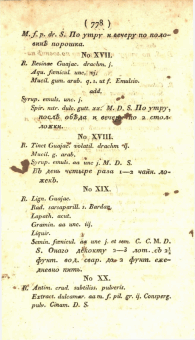 ( 778 )
M. f. p. dr. S. По утру и вечеру по поло-
винѣ порошка.
No XVII.
R. Resinae Guajac. drachm. j.
Aqu. foenicul. unc. iij.
Mucil. gum. arab. q. s. ut f. Emulsio.
add.
Syrup. emuls. unc. j.
Spir. nitr. dulc. gutt. xx. M. D. S. По утру,
послѣ обѣда и вечеру по 2 стол.
ложки.
No XVIII.
R. Tinct Guajac. volatil. drachm ij.
Mucil g. arab.
Syrup. emuls. aa unc j. M. D. S.
Въ день четыре раза 1—2 чайн. ло-
жекъ.
No XIX.
R. Lign. Guajac.
Rad. sarsaparill. s. Bardan.
Lapath. acut.
Gramin. aa unc. iij.
Liquir.
Semin. foenicul. aa unc j. et sem. C. C. M. D.
S. Онаго декокту 2—3 лот. съ
фунт. вод. свар. до 2 фунт. еже-
дневно пить.
No XX.
R. Antim. crud. subtiliss. pulveris.
Extract. dulcamar. aa m. f. pil. gr. ij. Consperg.
pulv. Cinam. D. S.